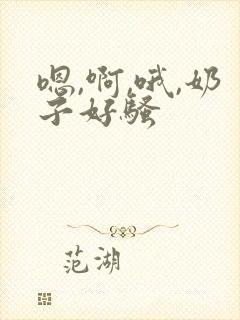 嗯,啊,哦,奶
子好骚
范湖